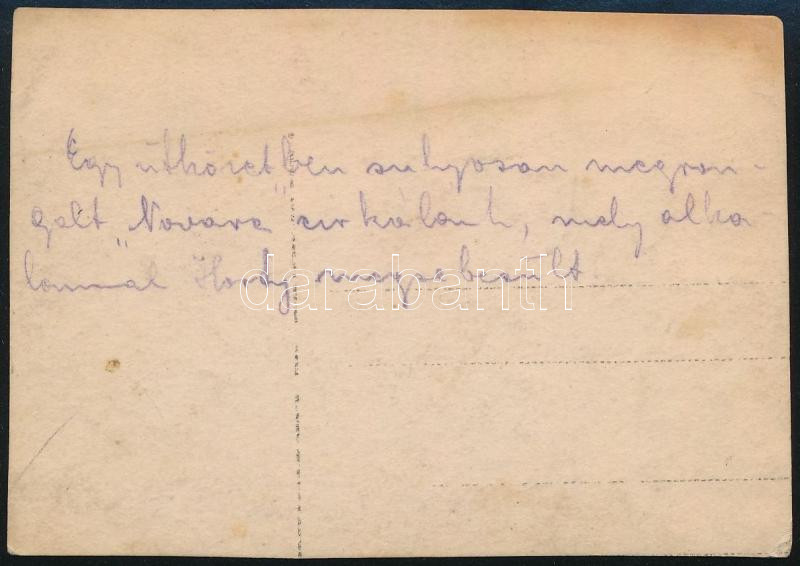 Egy ütközetben sulyosan megron-
gált „Novara" cirkálónk, mely alka-
lommal Horty megsebesült.
darabanth